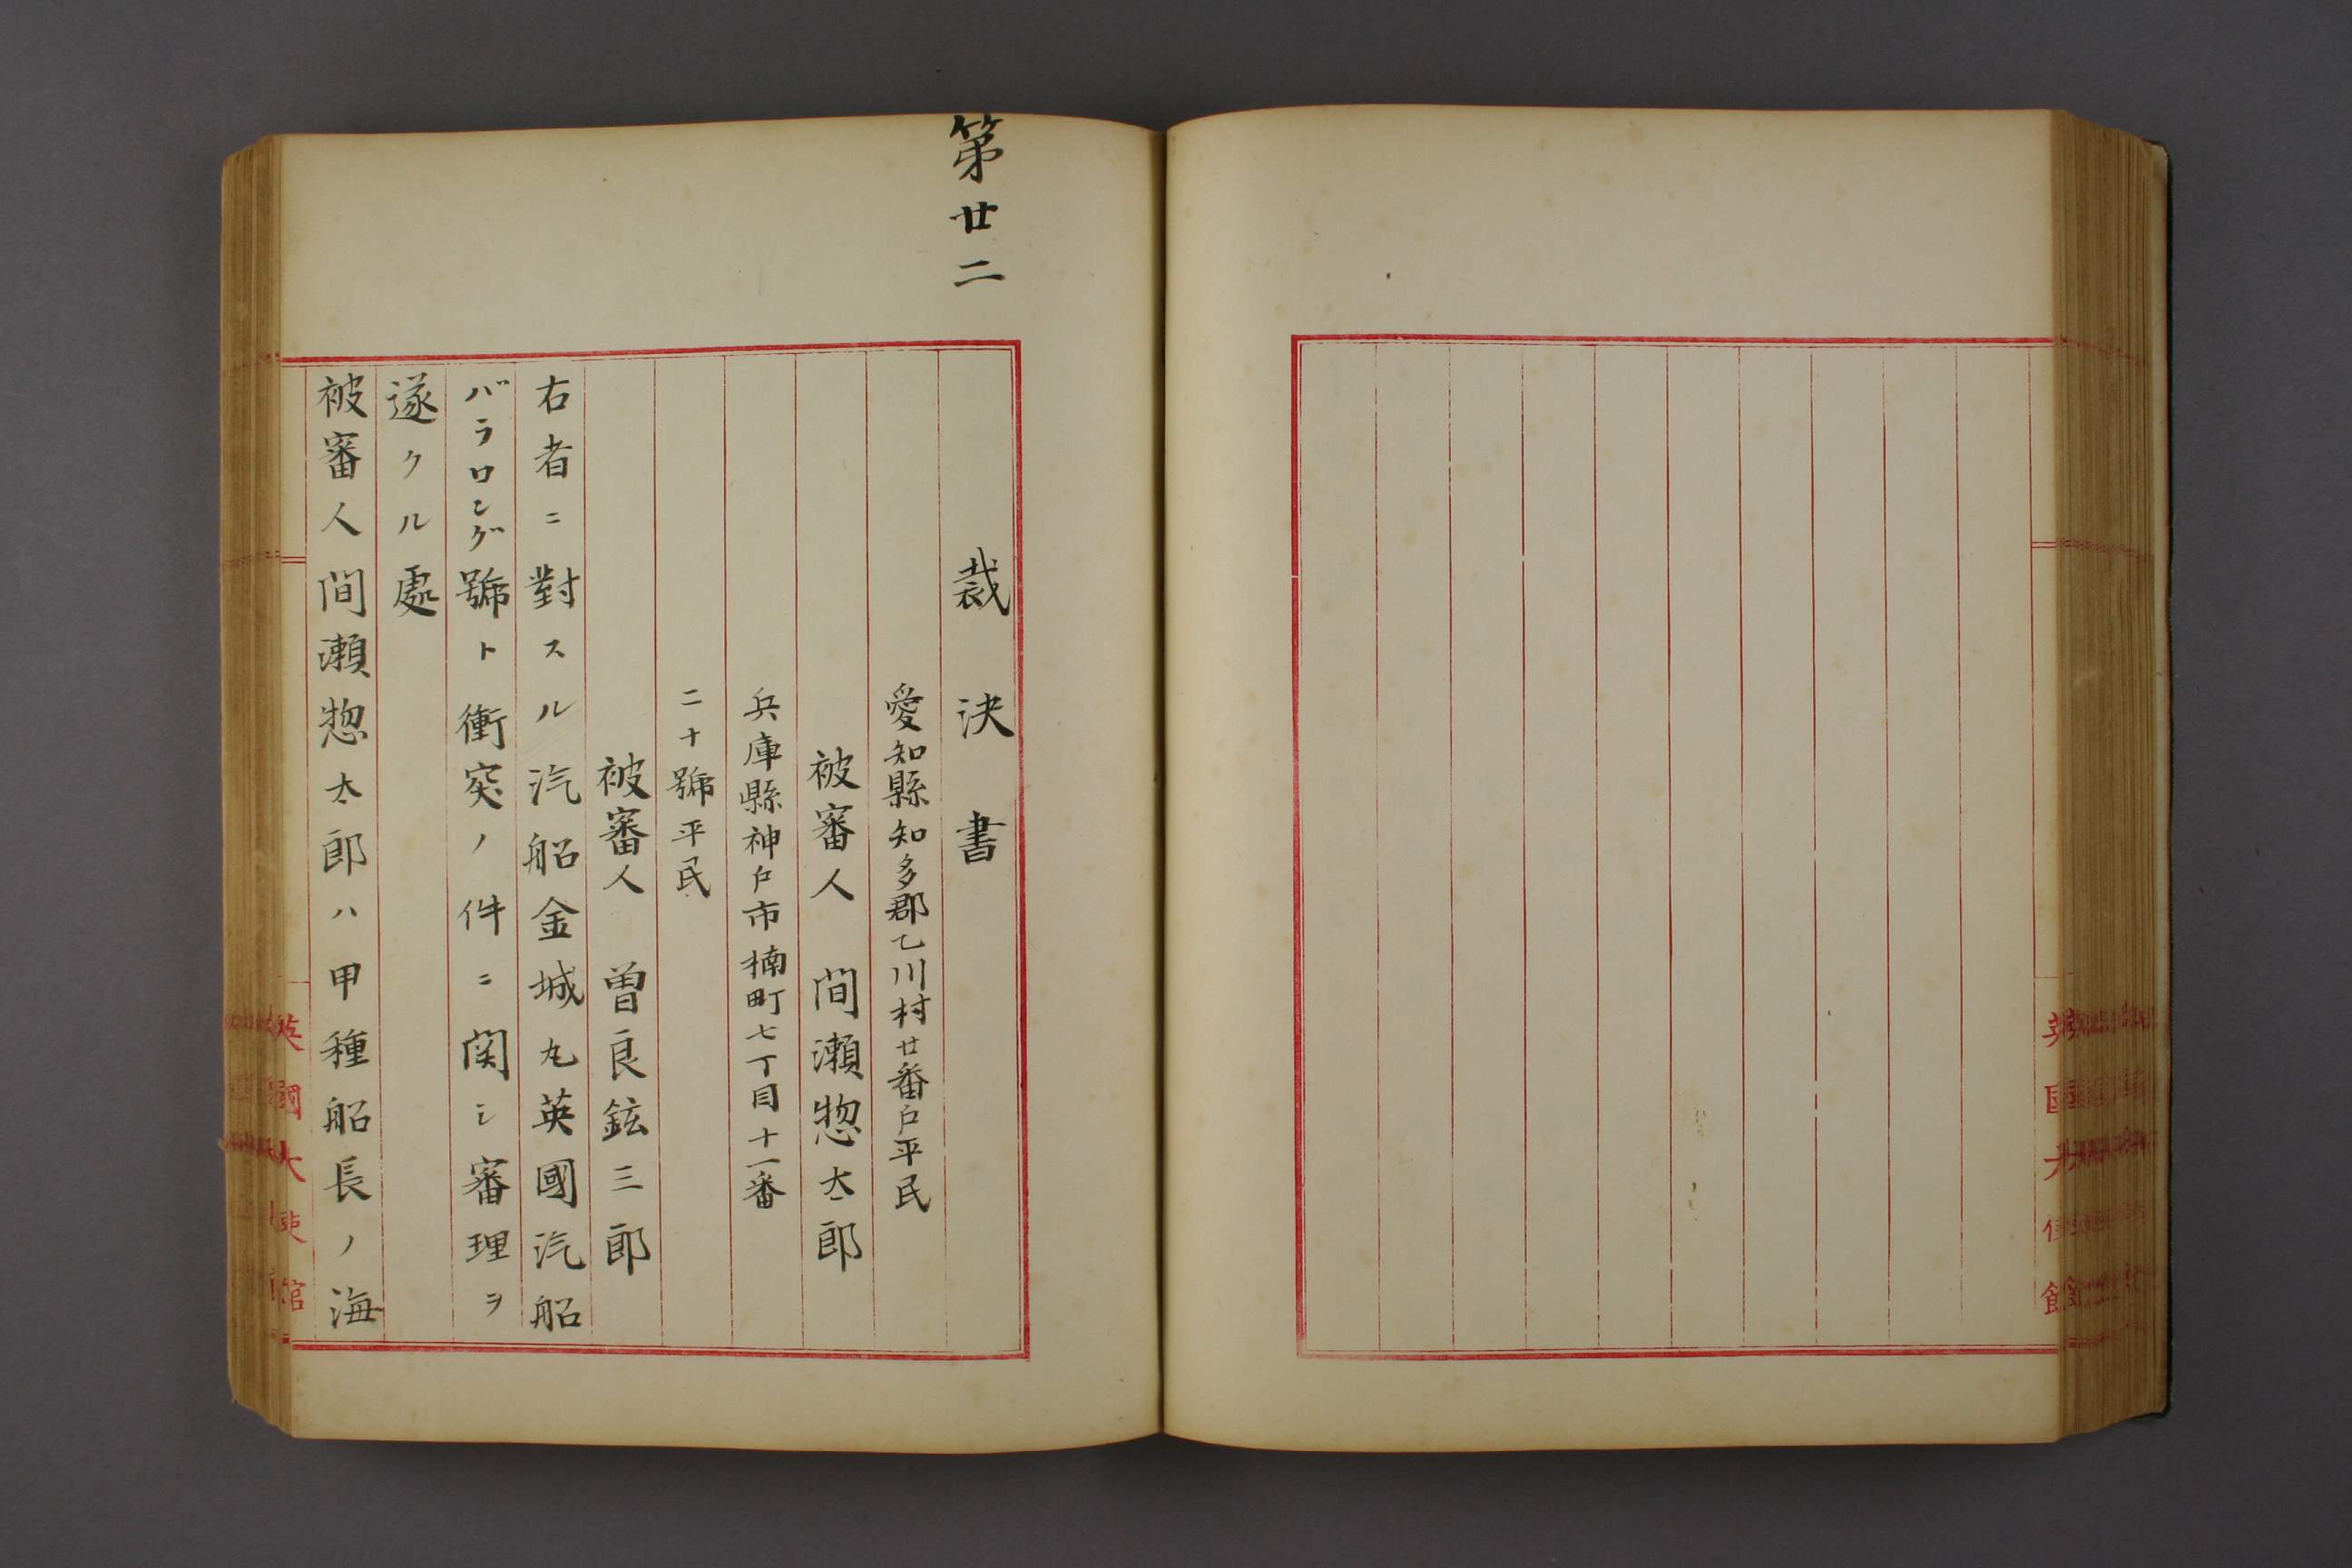 第廿二
裁決書
愛知縣知多郡乙川村廿番戸平民
被審人 間瀬惣太郎
兵庫縣神戸市楠町七丁目十一番
二十號平民
被審人 曽良鉉三郎
右者ニ對スル汽船金城丸英國汽船
バラロング號ト衝突ノ件ニ関シ審理ヲ
遂クル處
被審人間瀬惣太郎ハ甲種船長ノ海
英國大使館
英國大使館